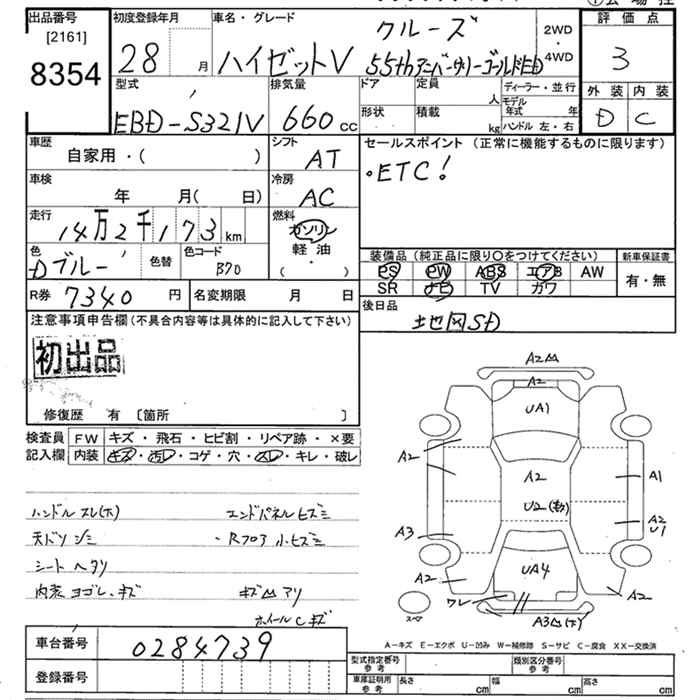 出品番号 [2161] 8354
初度登録年月 28 月
車名・グレード クルーズ
ハイゼットV 55thアニバーサリーゴールドED
2WD・4WD
評価点 3
外装 D 内装 C
型式 EBD-S321V
排気量 660cc
ドア 形状
定員 人 積載 kg
ディーラー・並行
モデル年式 年
ハンドル 左・右
車歴 自家用・( )
シフト AT
セールスポイント (正常に機能するものに限ります)
・ETC!
車検 年 月( 日)
冷房 AC
走行 14万2千173km
燃料 ガソリン 軽油・( )
色 Dブルー 色替 色コード B70
装備品 (純正品に限り○をつけてください)
PS PW ABS エアB AW
SR ナビ TV カワ
新車保証書 有・無
R券 7340円 名変期限 月 日
後日品 地図SD
注意事項申告欄 (不具合内容等は具体的に記入して下さい)
初出品
修復歴 有 〔箇所 〕
検査員記入欄
FW キズ・飛石・ヒビ割・リペア跡・×要
内装 キズ・汚レ・コゲ・穴・スレ・キレ・破レ
ハンドルスレ(大) エンドパネルヒズミ
天ドツシミ ・Rフロア小ヒズミ
シートヘタリ
内装ヨゴレ、キズ キズ凹アリ
ホイールCキズ
A2凹
A2
UA1
A2 A2 A1
U2(動)
A3 A2 U1
A2 UA4 A2
ワレ
スペア A3凹(下)
A-キズ E-エクボ U-凹み W-補修跡 S-サビ C-腐食 XX-交換済
車台番号 0284739
登録番号
型式指定番号 参考 類別区分番号 参考
車庫証明用 参考 長さ cm 幅 cm 高さ cm